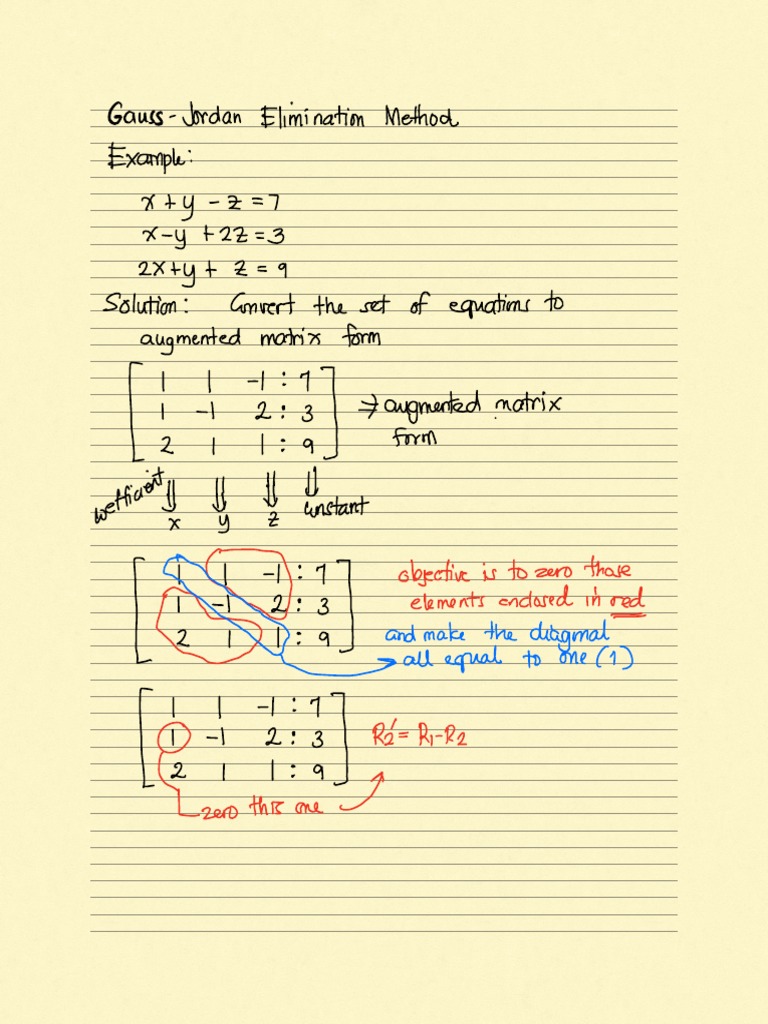 Gauss-Jordan Elimination Method
Example:
x + y - z = 7
x - y + 2z = 3
2x + y + z = 9
Solution: Convert the set of equations to
augmented matrix form
1 1 -1 : 7
1 -1 2 : 3 ⇒ augmented matrix
2 1 1 : 9 form
coefficient ⇓ ⇓ ⇓ ⇓ constant
x y z
1 1 -1 : 7 objective is to zero those
1 -1 2 : 3 elements enclosed in red
2 1 1 : 9 and make the diagonal
all equal to one (1)
1 1 -1 : 7
1 -1 2 : 3 R2' = R1 - R2
2 1 1 : 9
zero this one